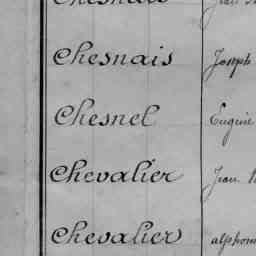 Chesnais Joseph
Chesnel Eugène
Chevalier Jean
Chevalier